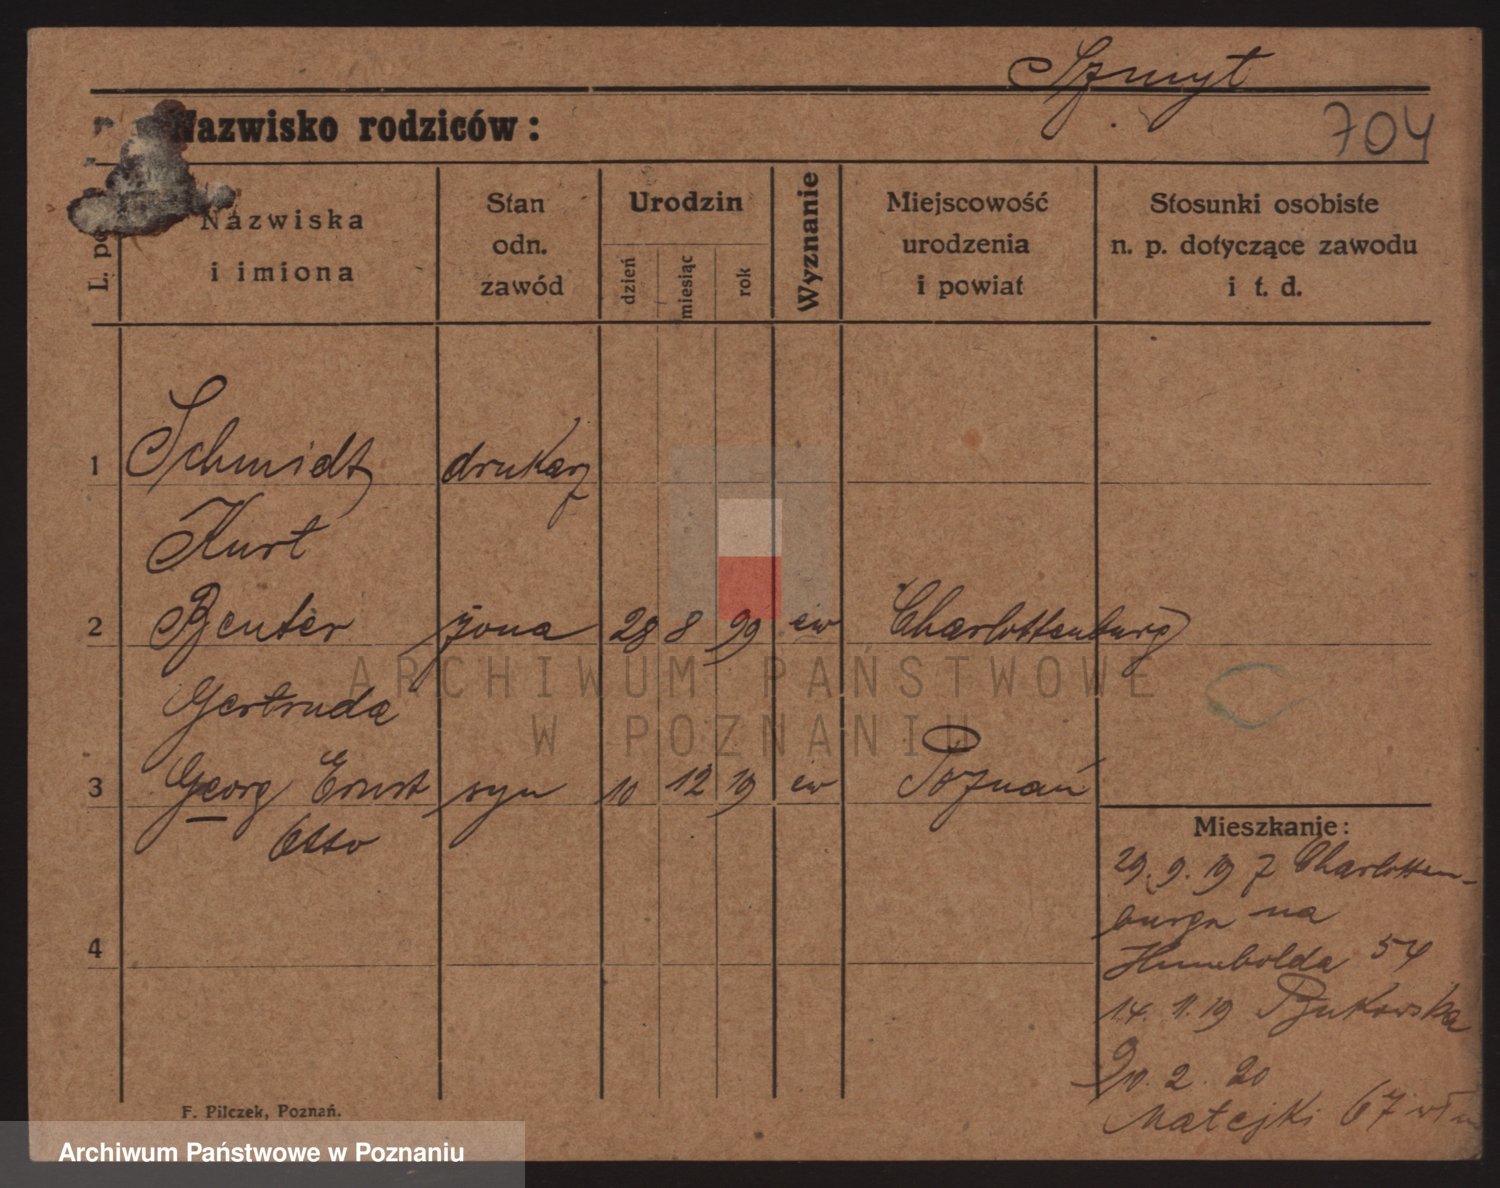 Szmyt
Nazwisko rodziców:
704
L. po
Nazwiska
i imiona
Stan
odn.
zawód
Urodzin
dzień
miesiąc
rok
Wyznanie
Miejscowość
urodzenia
i powiat
Stosunki osobiste
n. p. dotyczące zawodu
i t. d.
1 Schmidt drukarz
Kurt
2 Benter żona 28 8 99 ew Charlottenburg
Gertruda
3 Georg Ernst syn 10 12 19 ew Poznań
Otto
4
Mieszkanie:
29. 9. 19 z Charlotten-
burga na
Humbolda 54
14. 1. 19 Bukowska
20. 2. 20
Matejki 67
F. Pilczek, Poznań.
ARCHIWUM PAŃSTWOWE
W POZNANIU
Archiwum Państwowe w Poznaniu